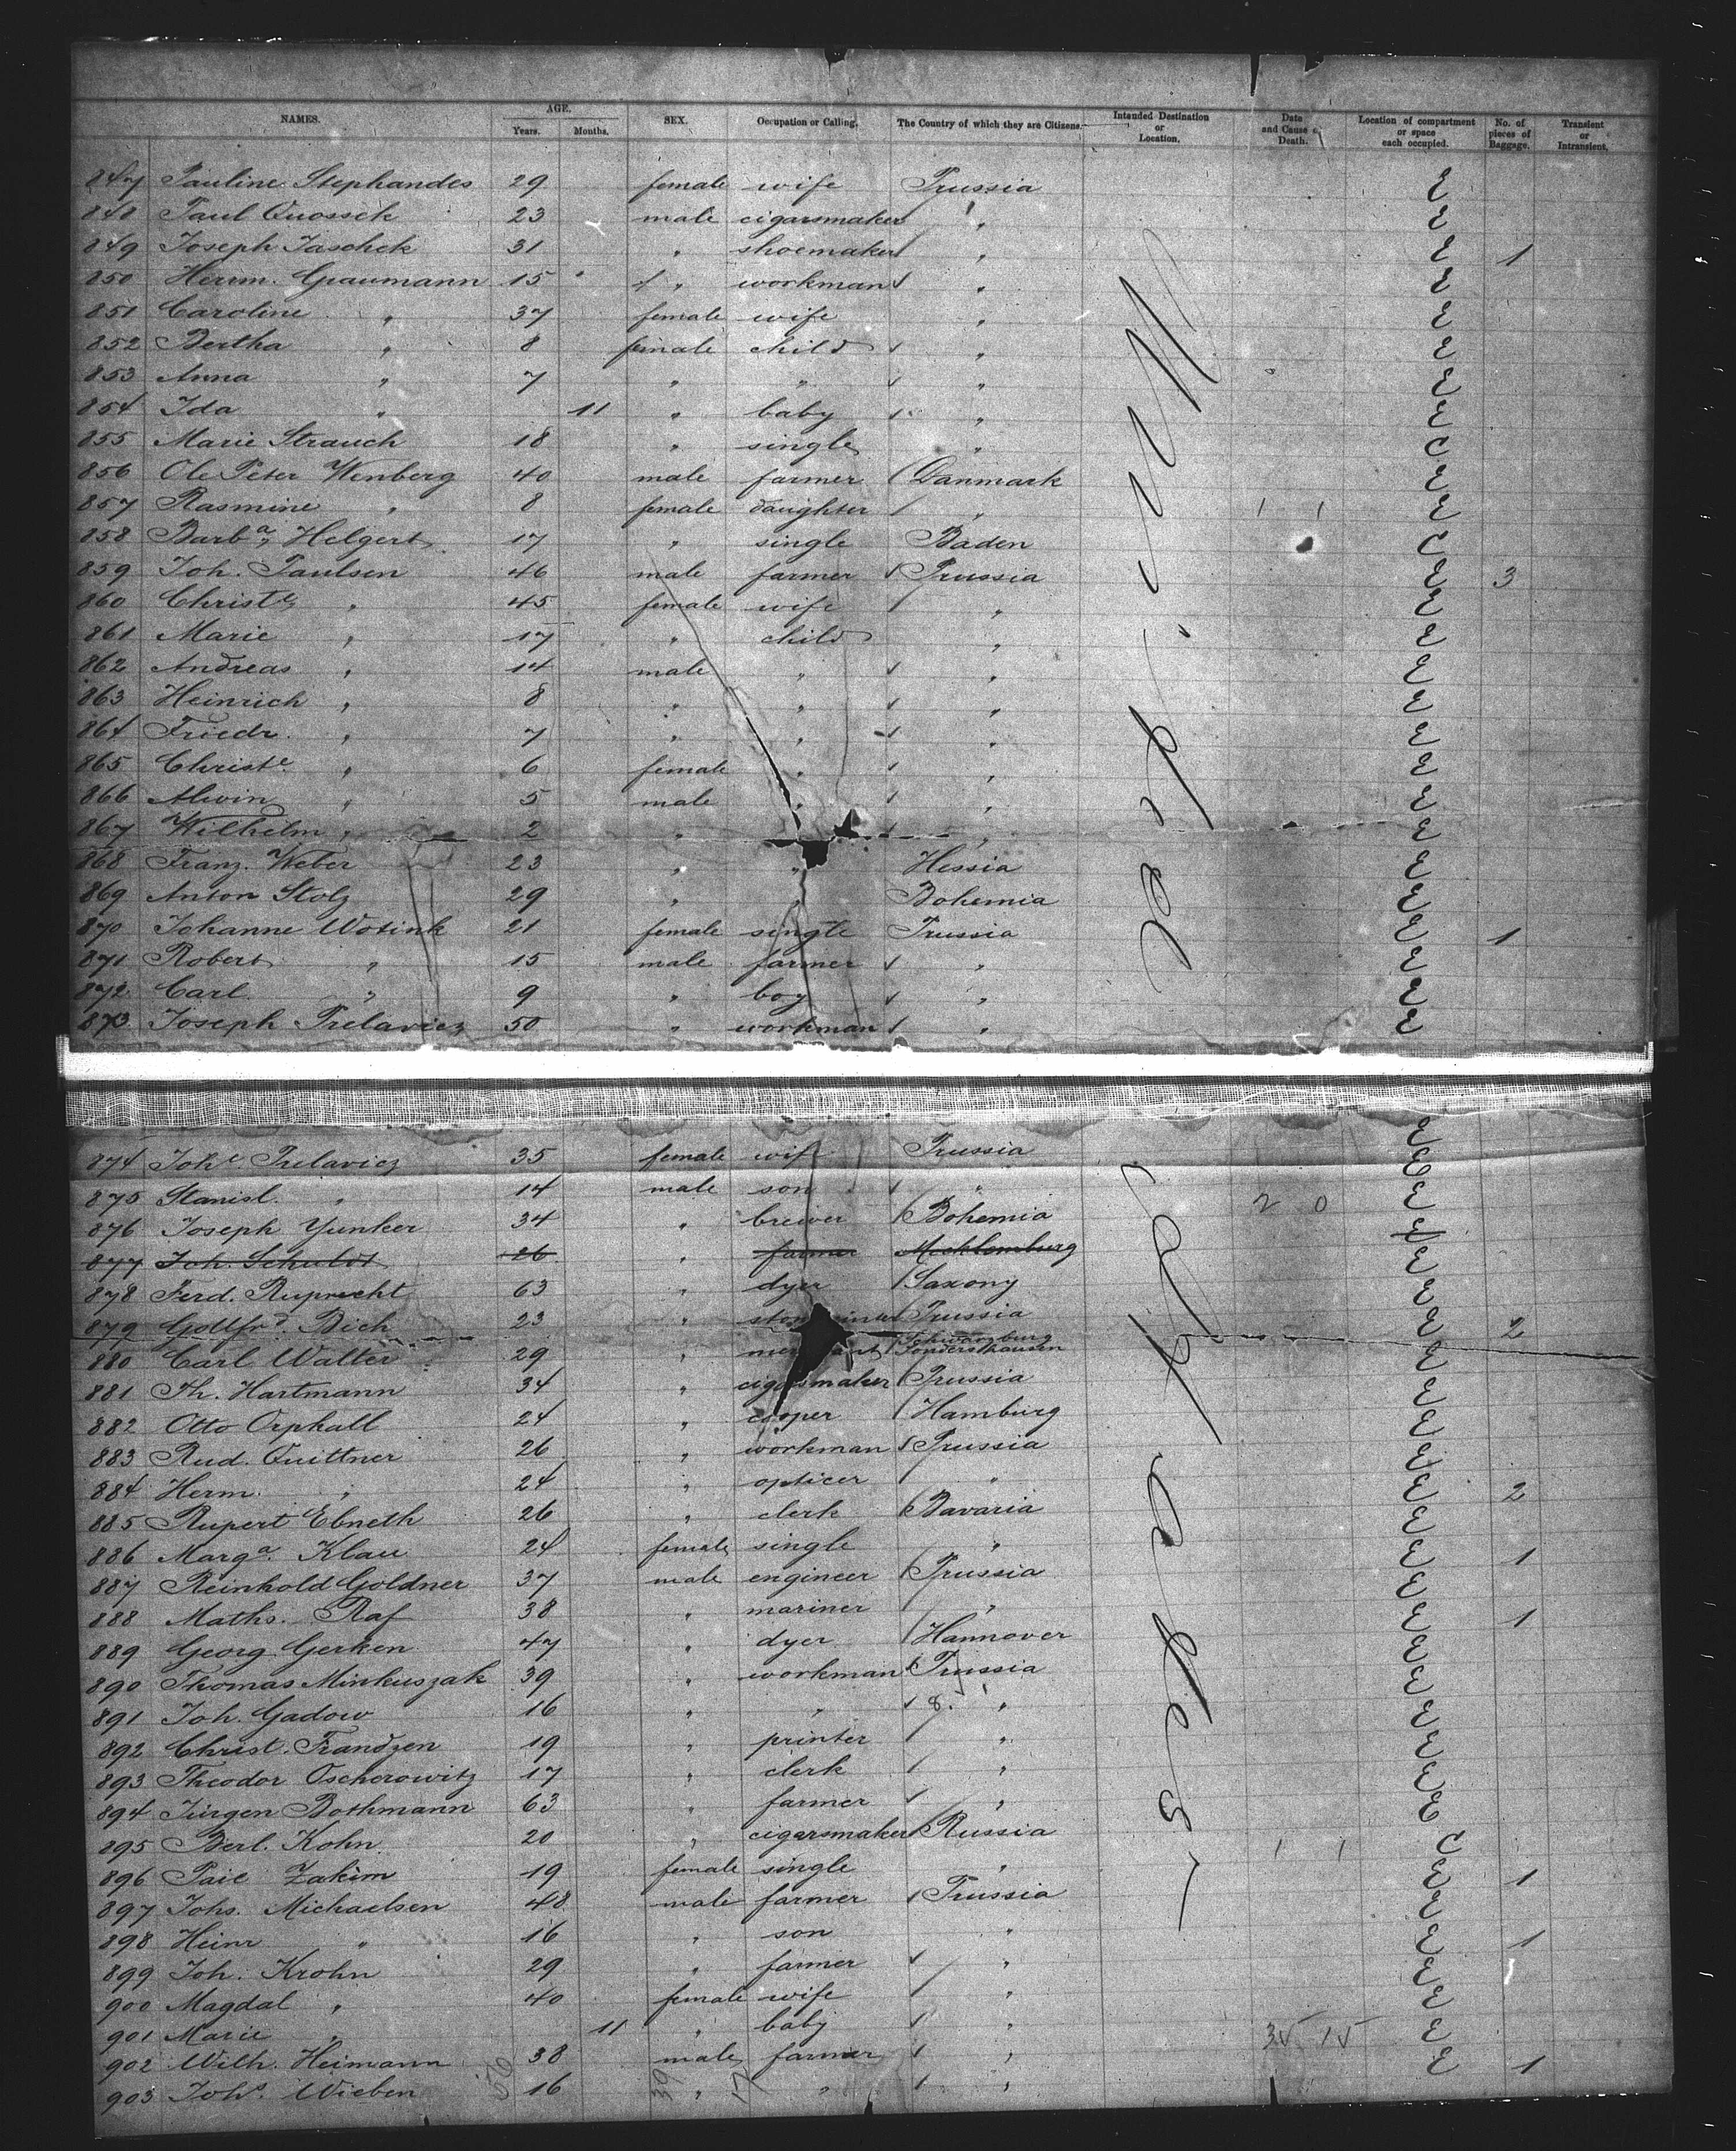 NAMES. AGE. Years. Months. SEX. Occupation or Calling. The Country of which they are Citizens. Intended Destination or Location. Date and Cause of Death. Location of compartment or space each occupied. No. of pieces of Baggage. Transient or Intransient.
847 Pauline Stephandes 29 female wife Prussia
848 Paul Quossek 23 male cigarsmaker "
849 Joseph Jaschek 31 " shoemaker " 1
850 Herrm. Graumann 15 " workman "
851 Caroline " 37 female wife "
852 Bertha " 8 female child "
853 Anna " 7 " " "
854 Ida " 11 " baby "
855 Marie Strauch 18 " single "
856 Ole Peter Wenberg 40 male farmer Danmark
857 Rasmine " 8 female daughter "
858 Barba Helgert 17 " single Baden
859 Joh. Paulsen 46 male farmer Prussia 3
860 Christe " 45 female wife "
861 Marie " 17 " child "
862 Andreas " 14 male " "
863 Heinrich " 8 " " "
864 Friedr. " 7 " " "
865 Christe " 6 female " "
866 Alwin " 5 male " "
867 Wilhelm " 2 " "
868 Franz. Weber 23 " " Hessia
869 Anton Stolz 29 " " Bohemia
870 Johanne Wotink 21 female single Prussia 1
871 Robert " 15 male farmer "
872 Carl " 9 " boy "
873 Joseph Prelavicz 50 " workman "
874 Johe. Prelavicz 35 female wife Prussia
875 Stanisl. " 14 male son " 2 0
876 Joseph Yunker 34 " brewer Bohemia
877 Joh. Schuldt 26 " farmer Mecklemburg
878 Ferd. Ruprecht 63 " dyer Saxony
879 Gottfrd. Bich 23 " Prussia 2
880 Carl Walter 29 " Schwarzburg Sondershausen
881 Th. Hartmann 34 " cigarsmaker Prussia
882 Otto Orphall 24 " cooper Hamburg
883 Rud. Quittner 26 " workman Prussia
884 Herm. " 24 " opticer " 2
885 Rupert Ebneth 26 " clerk Bavaria
886 Marga. Klau 24 female single " 1
887 Reinhold Goldner 37 male engineer Prussia
888 Maths. Raf 38 " mariner " 1
889 Georg Gerken 47 " dyer Hannover
890 Thomas Minkuszak 39 " workman Prussia
891 Joh. Gadow 16 " " 8. "
892 Christ. Frandzen 19 " printer "
893 Theodor Oscherowitz 17 " clerk "
894 Jürgen Bothmann 63 " farmer "
895 Berl. Kohn 20 " cigarsmaker Russia
896 Paie Zakim 19 female single " 1
897 Johs. Michaelsen 48 male farmer Prussia
898 Heinr " 16 " son " 1
899 Joh. Krohn 29 " farmer "
900 Magdal " 40 female wife "
901 Marie " 11 " baby "
902 Wilh. Heimann 38 male farmer " 1
903 Johs. Wieben 16 " " "